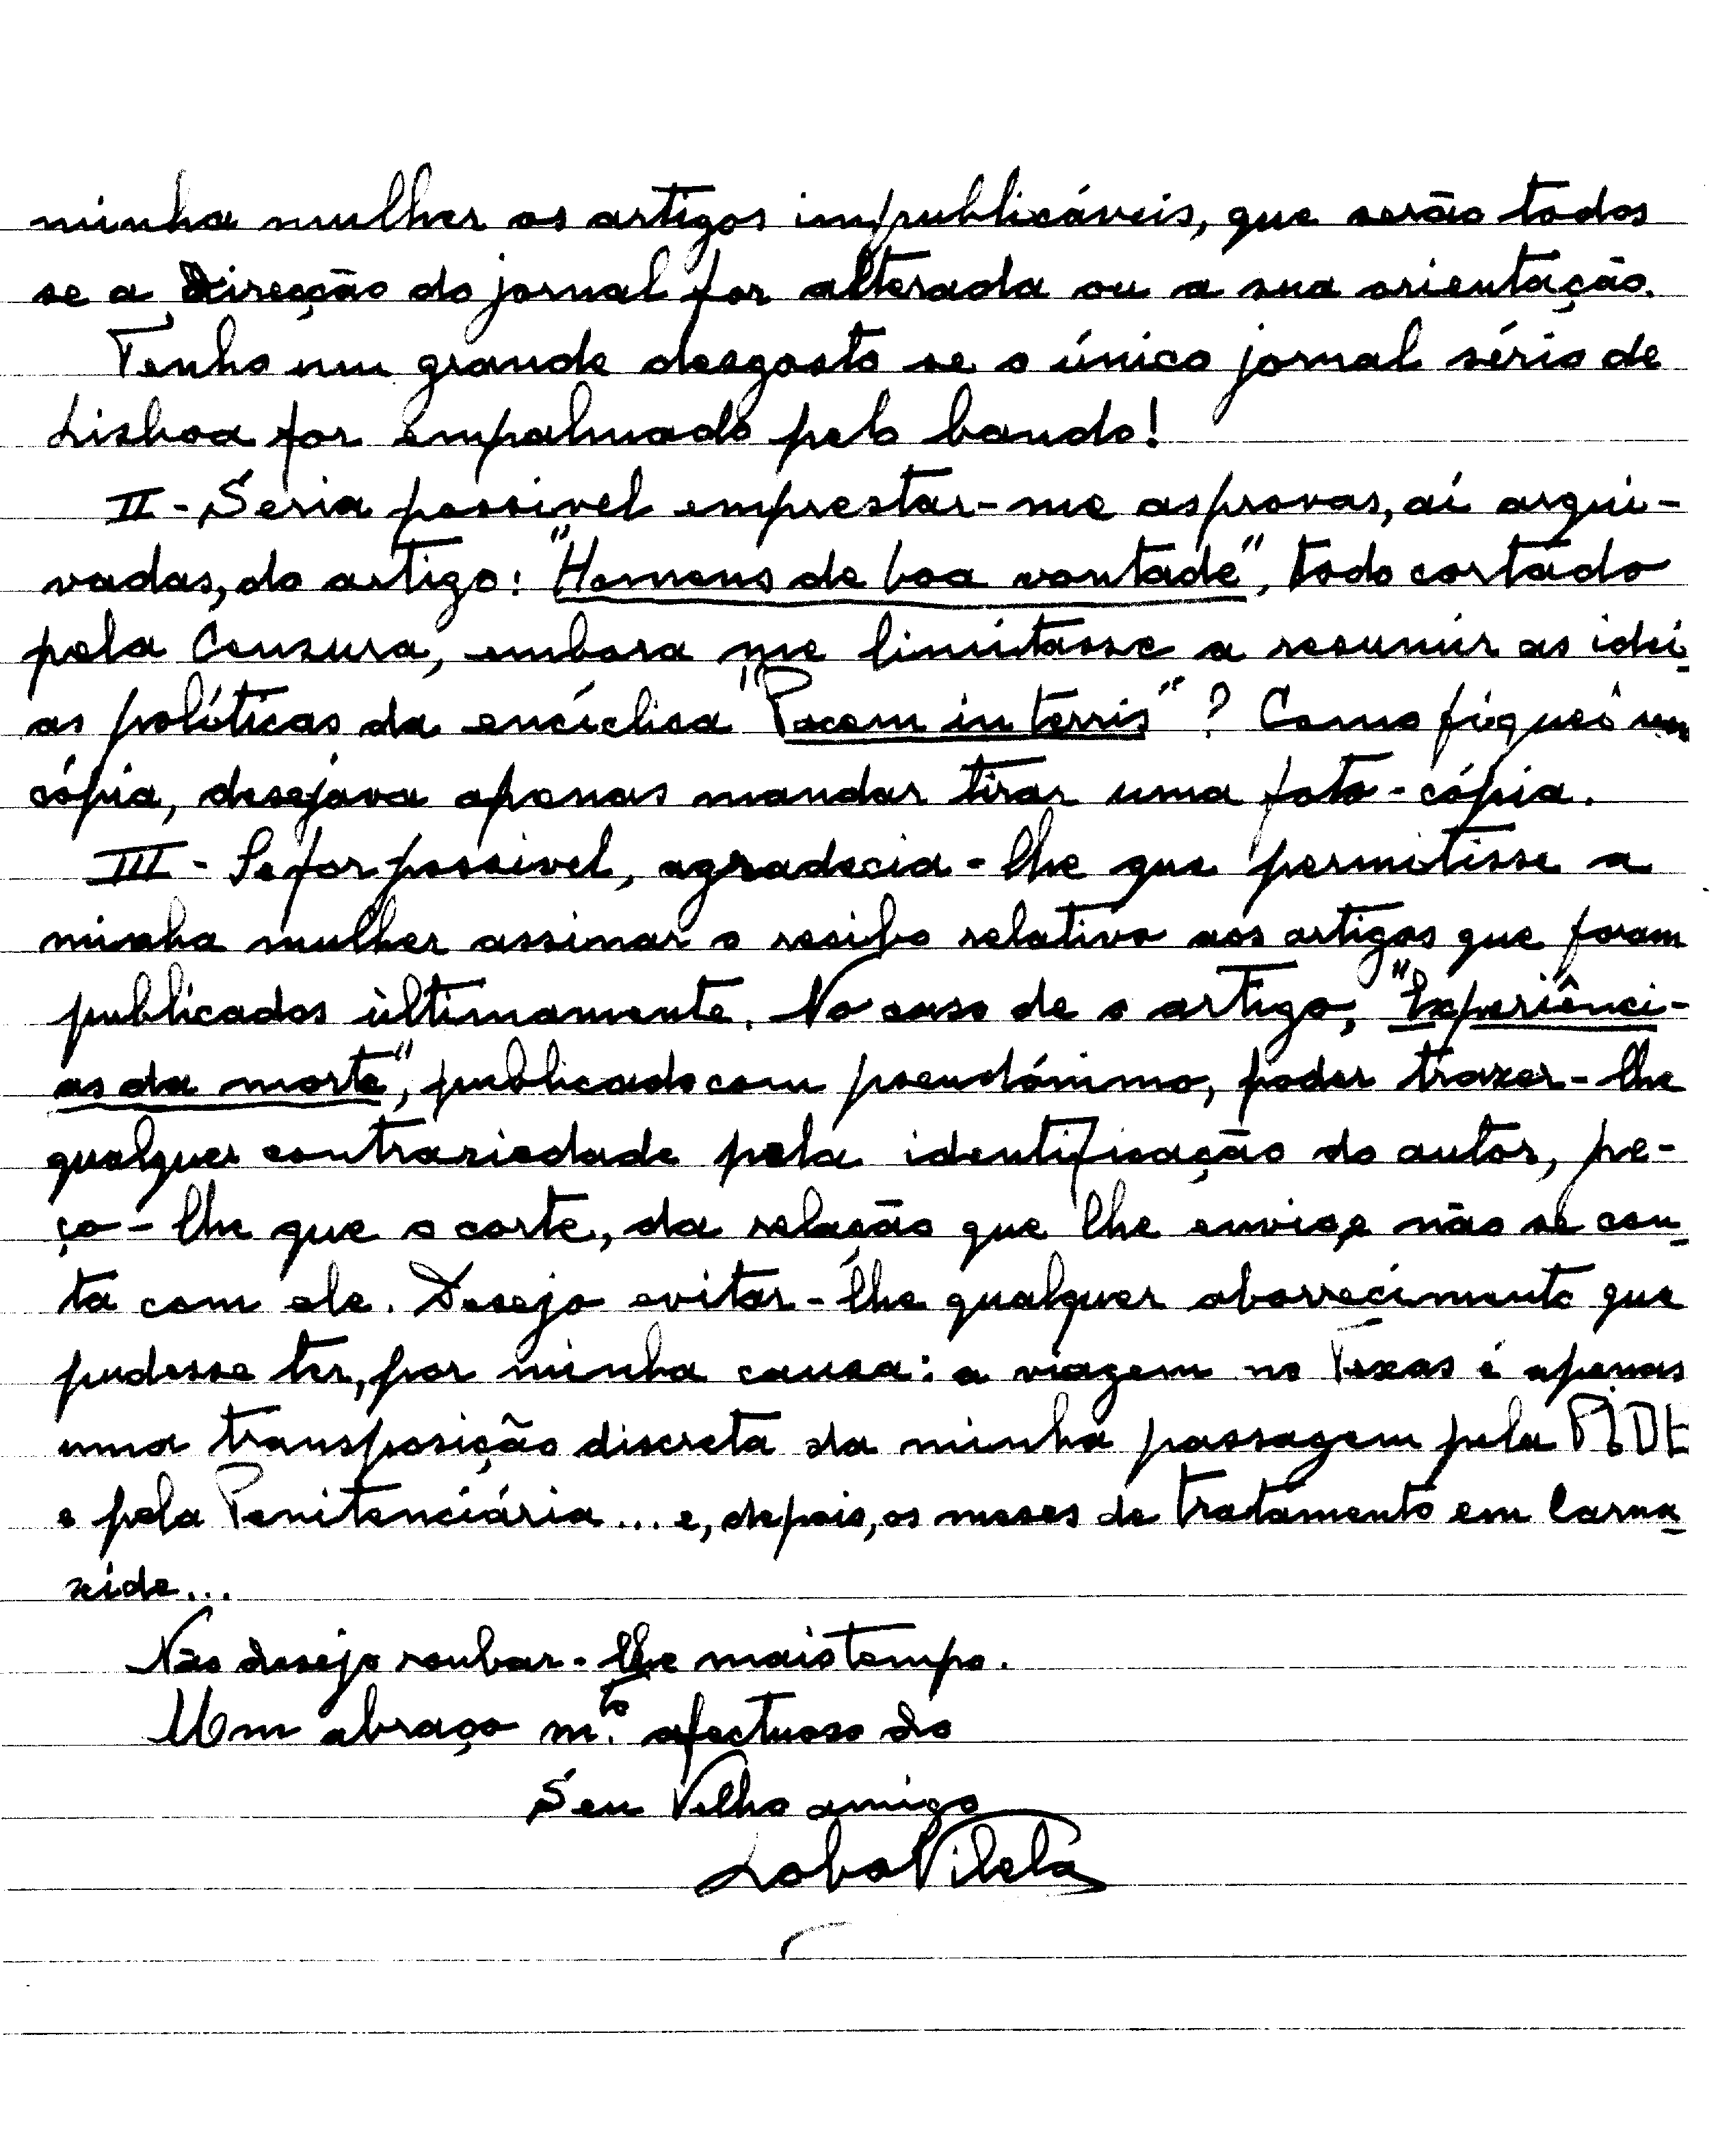 minha mulher os artigos impublicáveis, que serão todos
se a Direcção do jornal for alterada ou a sua orientação.
Tenho um grande desgosto se o único jornal sério de
Lisboa for empalmado pelo bando!
II - Seria possivel emprestar-me as provas, aí arqui-
vadas, do artigo: "Homens de boa vontade", todo cortado
pela Censura, embora me limitasse a resumir as idei-
as políticas da encíclica "Pacem in terris"? Como fiquei sem
cópia, desejava apenas mandar tirar uma foto-cópia.
III - Se for possivel, agradecia-lhe que permitisse a
minha mulher assinar o recibo relativo aos artigos que foram
publicados ùltimamente. No caso de o artigo, "Experiênci-
as da morte", publicado com pseudónimo, poder trazer-lhe
qualquer contrariedade pela identificação do autor, pe-
ço-lhe que o corte, da relação que lhe envio, e não se con-
ta com ele. Desejo evitar-lhe qualquer aborrecimento que
pudesse ter, por minha causa: a viagem no Texas é apenas
uma transposição discreta da minha passagem pela PIDE
e pela Penitenciária... e, depois, os meses de tratamento em Carna-
xide...
Não desejo roubar-lhe mais tempo.
Um abraço m.to afectuoso do
Seu Velho amigo
Lobo Vilela